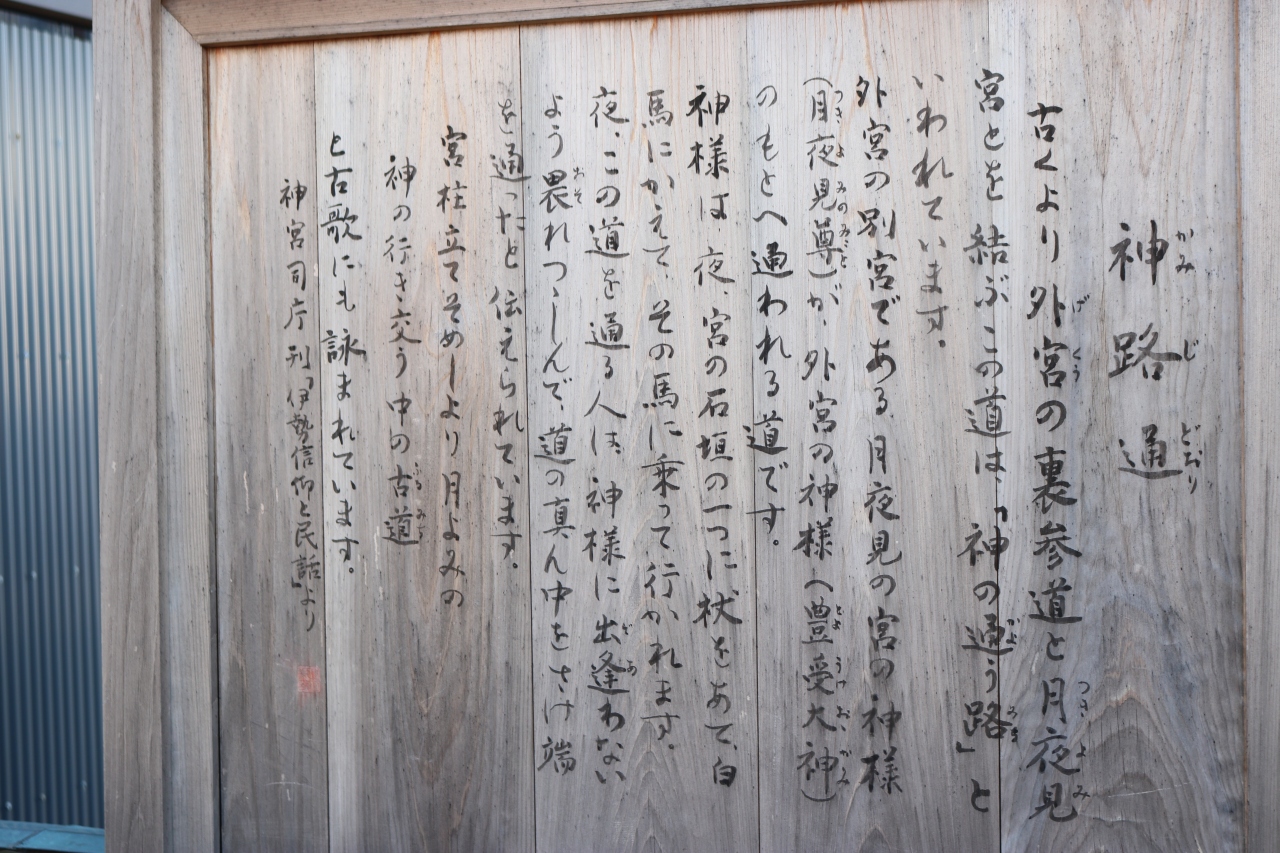 神路通
かみじどおり
古くより外宮の裏参道と月夜見
げくう
つきよみ
宮とを結ぶこの道は、「神の通う路」と
かよ
みち
いわれています。
外宮の別宮である月夜見の宮の神様
(月夜見尊)が、外宮の神様へ豊受大神)
つきよみのみこと
とようけおおみかみ
のもとへ通われる道です。
神様は、夜、宮の石垣の一つに杖をあて、白
馬にかえて、その馬に乗って行かれます。
夜、この道を通る人は、神様に出逢わない
であ
よう畏れつゝしんで、道の真ん中をさけ端
おそ
を通ったと伝えられています。
宮柱立てそめしより月よみの
神の行き交う中の古道
ふるみち
と古歌にも詠まれています。
神宮司庁刊「伊勢信仰と民話」より